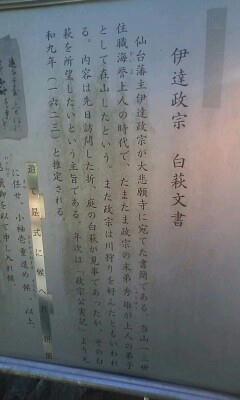 伊達政宗 白萩文書
仙台藩主伊達政宗が大悲願寺に宛てた書簡である。当山十三世
住職海誉上人の時代で、たまたま政宗の末弟秀雄が上人の弟子
として在山したという。また政宗は川狩りを好んだともいわれ
る。内容は先日訪問した折、庭の白萩が見事であったが、その白
萩を所望したいという主旨である。年次は「政宗公実記」より元
和九年(一六二三)と推定される。
是式に候へ
に任せ、小袖壱重進め候、以上、
以て申し入れ候